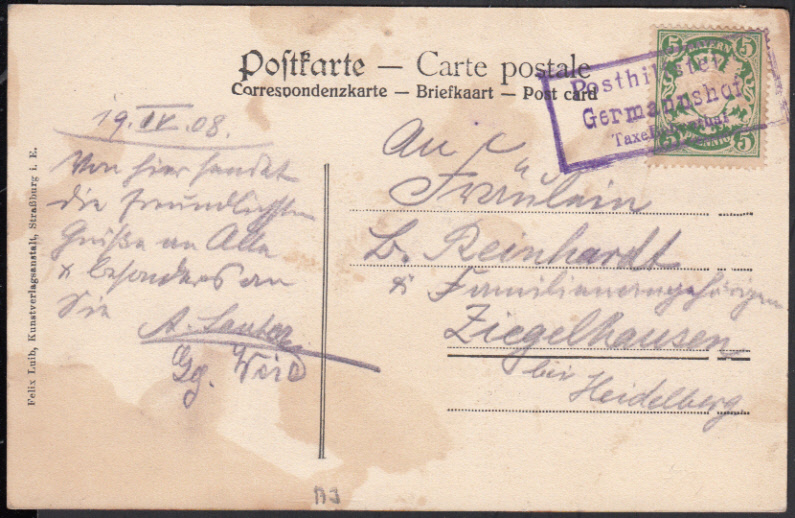 Postkarte — Carte postale
Correspondenzkarte — Briefkaart — Post card
Posthilfstelle
Germannshof
Taxe
5 5
5 5
19. IV. 08.
Von hier sendet
die freundlichsten
Grüße an Alle
& besonders an
Sie
A. Sauter
Gg. Weid
An
Fräulein
B. Reinhardt
& Familienangehörigen
Ziegelhausen
bei Heidelberg
Felix Luib, Kunstverlagsanstalt, Straßburg i. E.